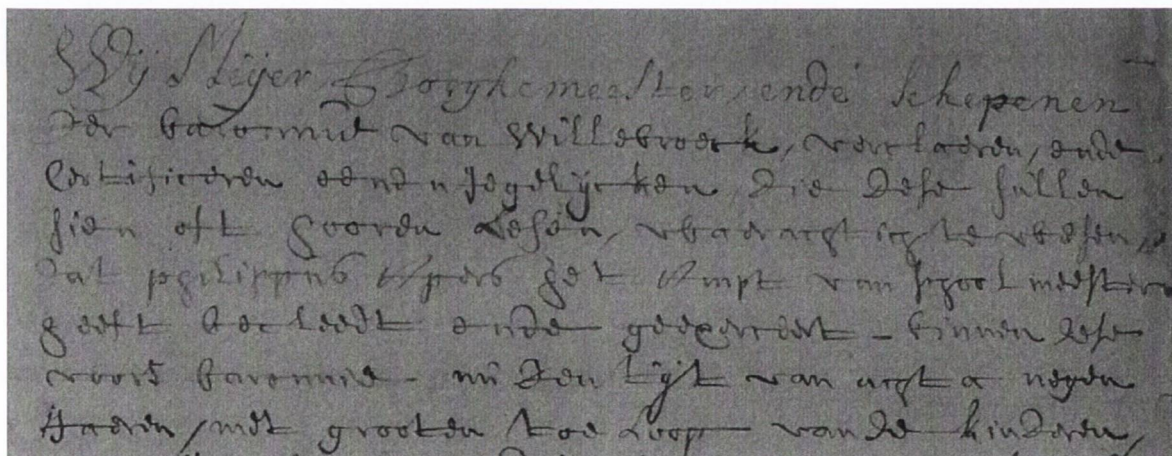 Wij Meijer Borghemeesters, ende Schepenen
der baronnie van Willebroeck, verclaeren, ende
Certificeren eenen Jegelijcken die dese sullen
sien oft hooren Lesen, waerachtich te wesen,
dat philippus het Ampt van schoolmeester
heeft becleedt ende geexerceert - binnen dese
voors baronnie - nu den tijt van acht a negen
Jaeren, met grooten toe Loop van de kinderen,